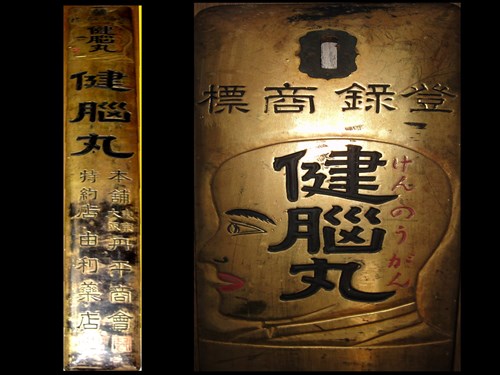 健腦丸
健腦丸
本舗 丹平商會
特約店 由利藥店
標商録登
健腦丸
けんのうがん